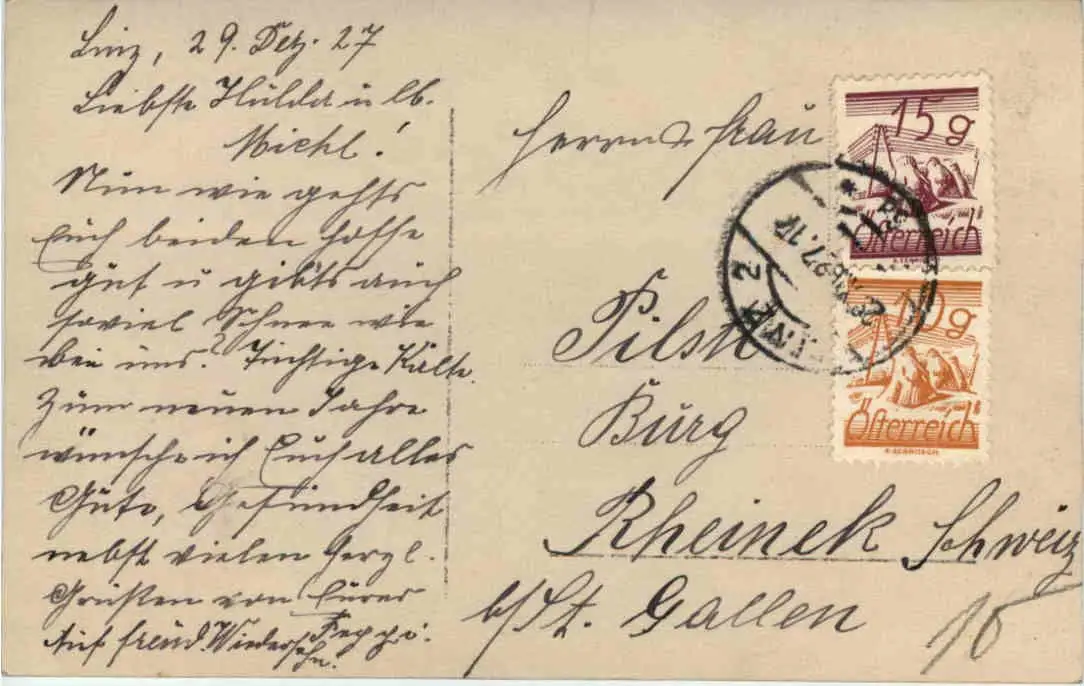 Linz, 29. Dez. 27
Liebste Hulda u lb.
Michl!
Nun wie gehts
Euch beiden hoffe
gut u gibts auch
soviel Schnee wie
bei uns? Tüchtige Kälte.
Zum neuen Jahre
wünsche ich Euch alles
Gute, Gesundheit
nebst vielen herzl.
Grüßen von Eurer
Auf freud. Wiedersehn!
Peppi.
Herrn u Frau
Pilstl
Burg
Rheinek Schweiz
b/St. Gallen
15 g
Österreich
10 g
Österreich
LINZ 2